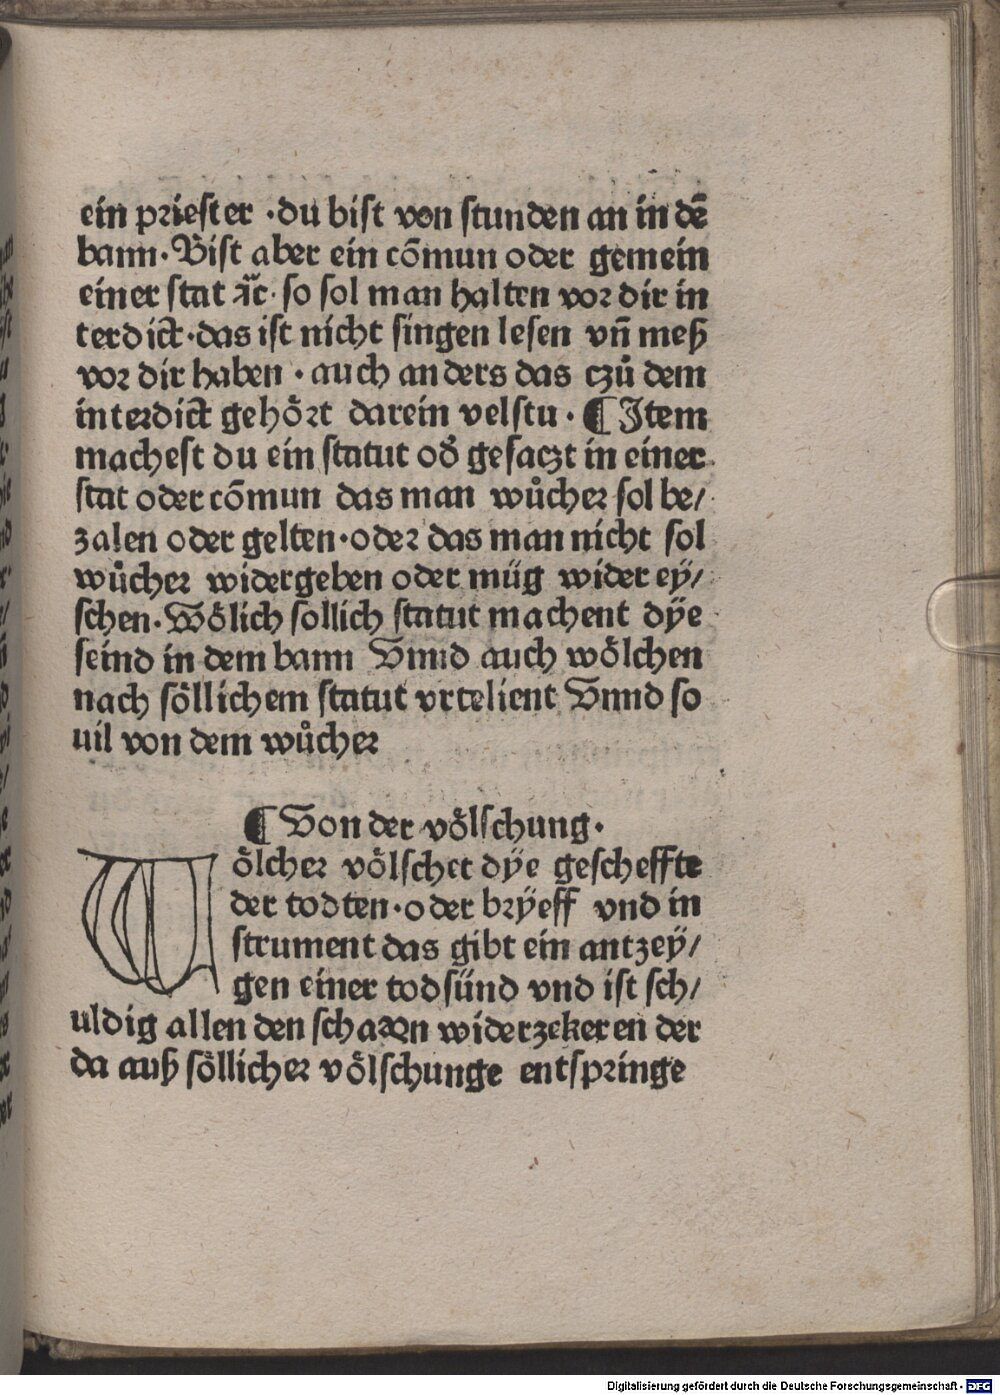 ein priester ·du bist von stunden an in dē
bann·Bist aber ein cōmun oder gemein
einer stat ꝛc̃· so sol man halten vor dir in
terdict·das ist nicht singen lesen vn̄ meß
vor dir haben · auch anders das czů dem
interdict gehört darein velstu · ¶ Item
machest du ein statut od̓ gesaczt in einer
stat oder cōmun das man wůcher sol be/
zalen oder gelten·oder das man nicht sol
wůcher widergeben oder müg wider eÿ/
schen·Wölich sollich statut machent dÿe
seind in dem bann Vnnd auch wölchen
nach söllichem statut vrtelient Vnnd so
uil von dem wůcher
¶ Von der völschung·
Wölcher völschet dÿe gescheffte
der todten·oder brÿeff vnd in
strument das gibt ein antzeÿ/
gen einer todsünd vnd ist sch/
uldig allen den schaden widerzekeren der
da auß söllicher völschunge entspringe
Digitalisierung gefördert durch die Deutsche Forschungsgemeinschaft · DFG